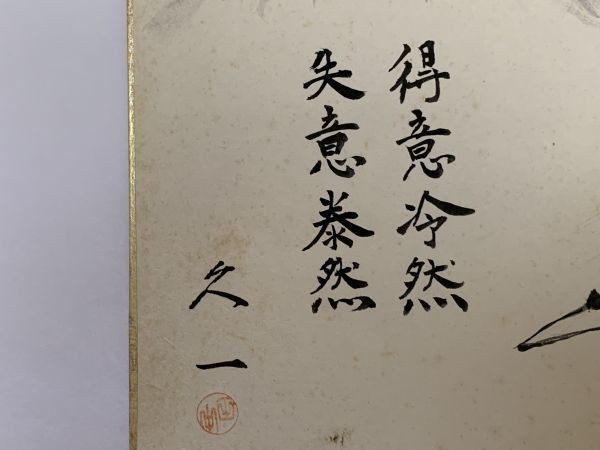 得意冷然
失意泰然
久一